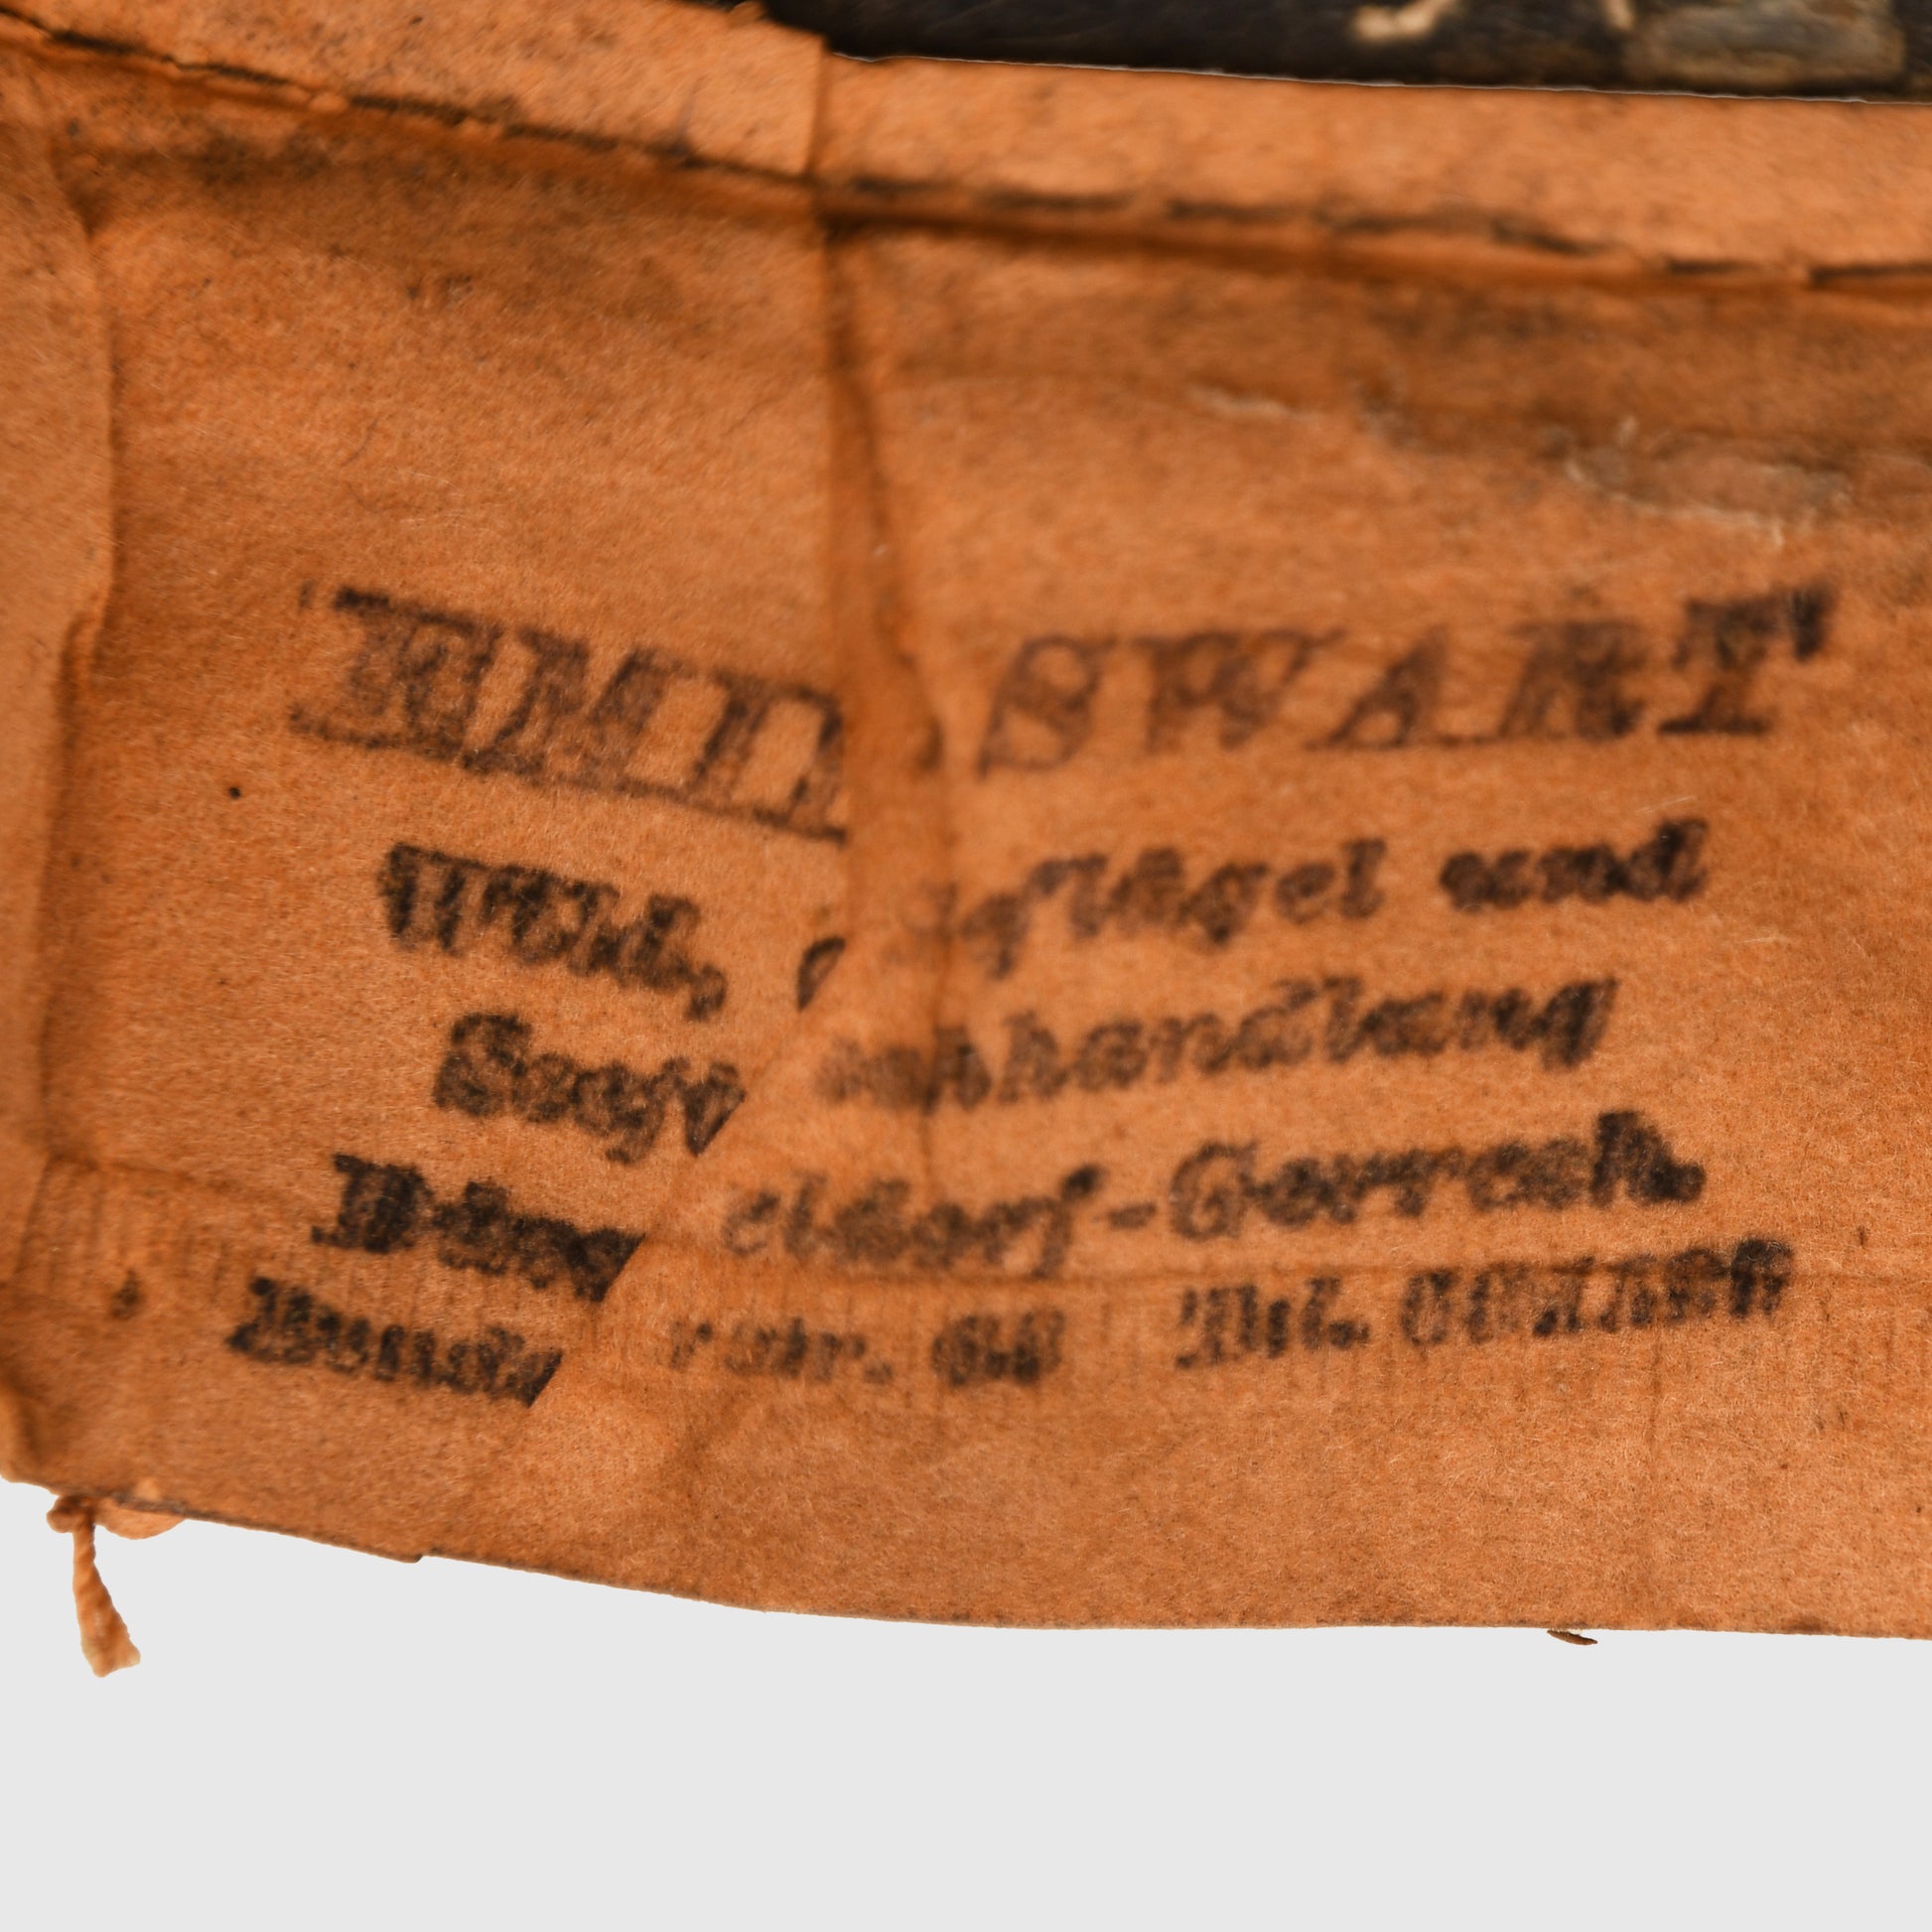 EMIL SWART
Wild, Geflügel und
Seefischhandlung
Düsseldorf-Gerresh.
str. Tel.